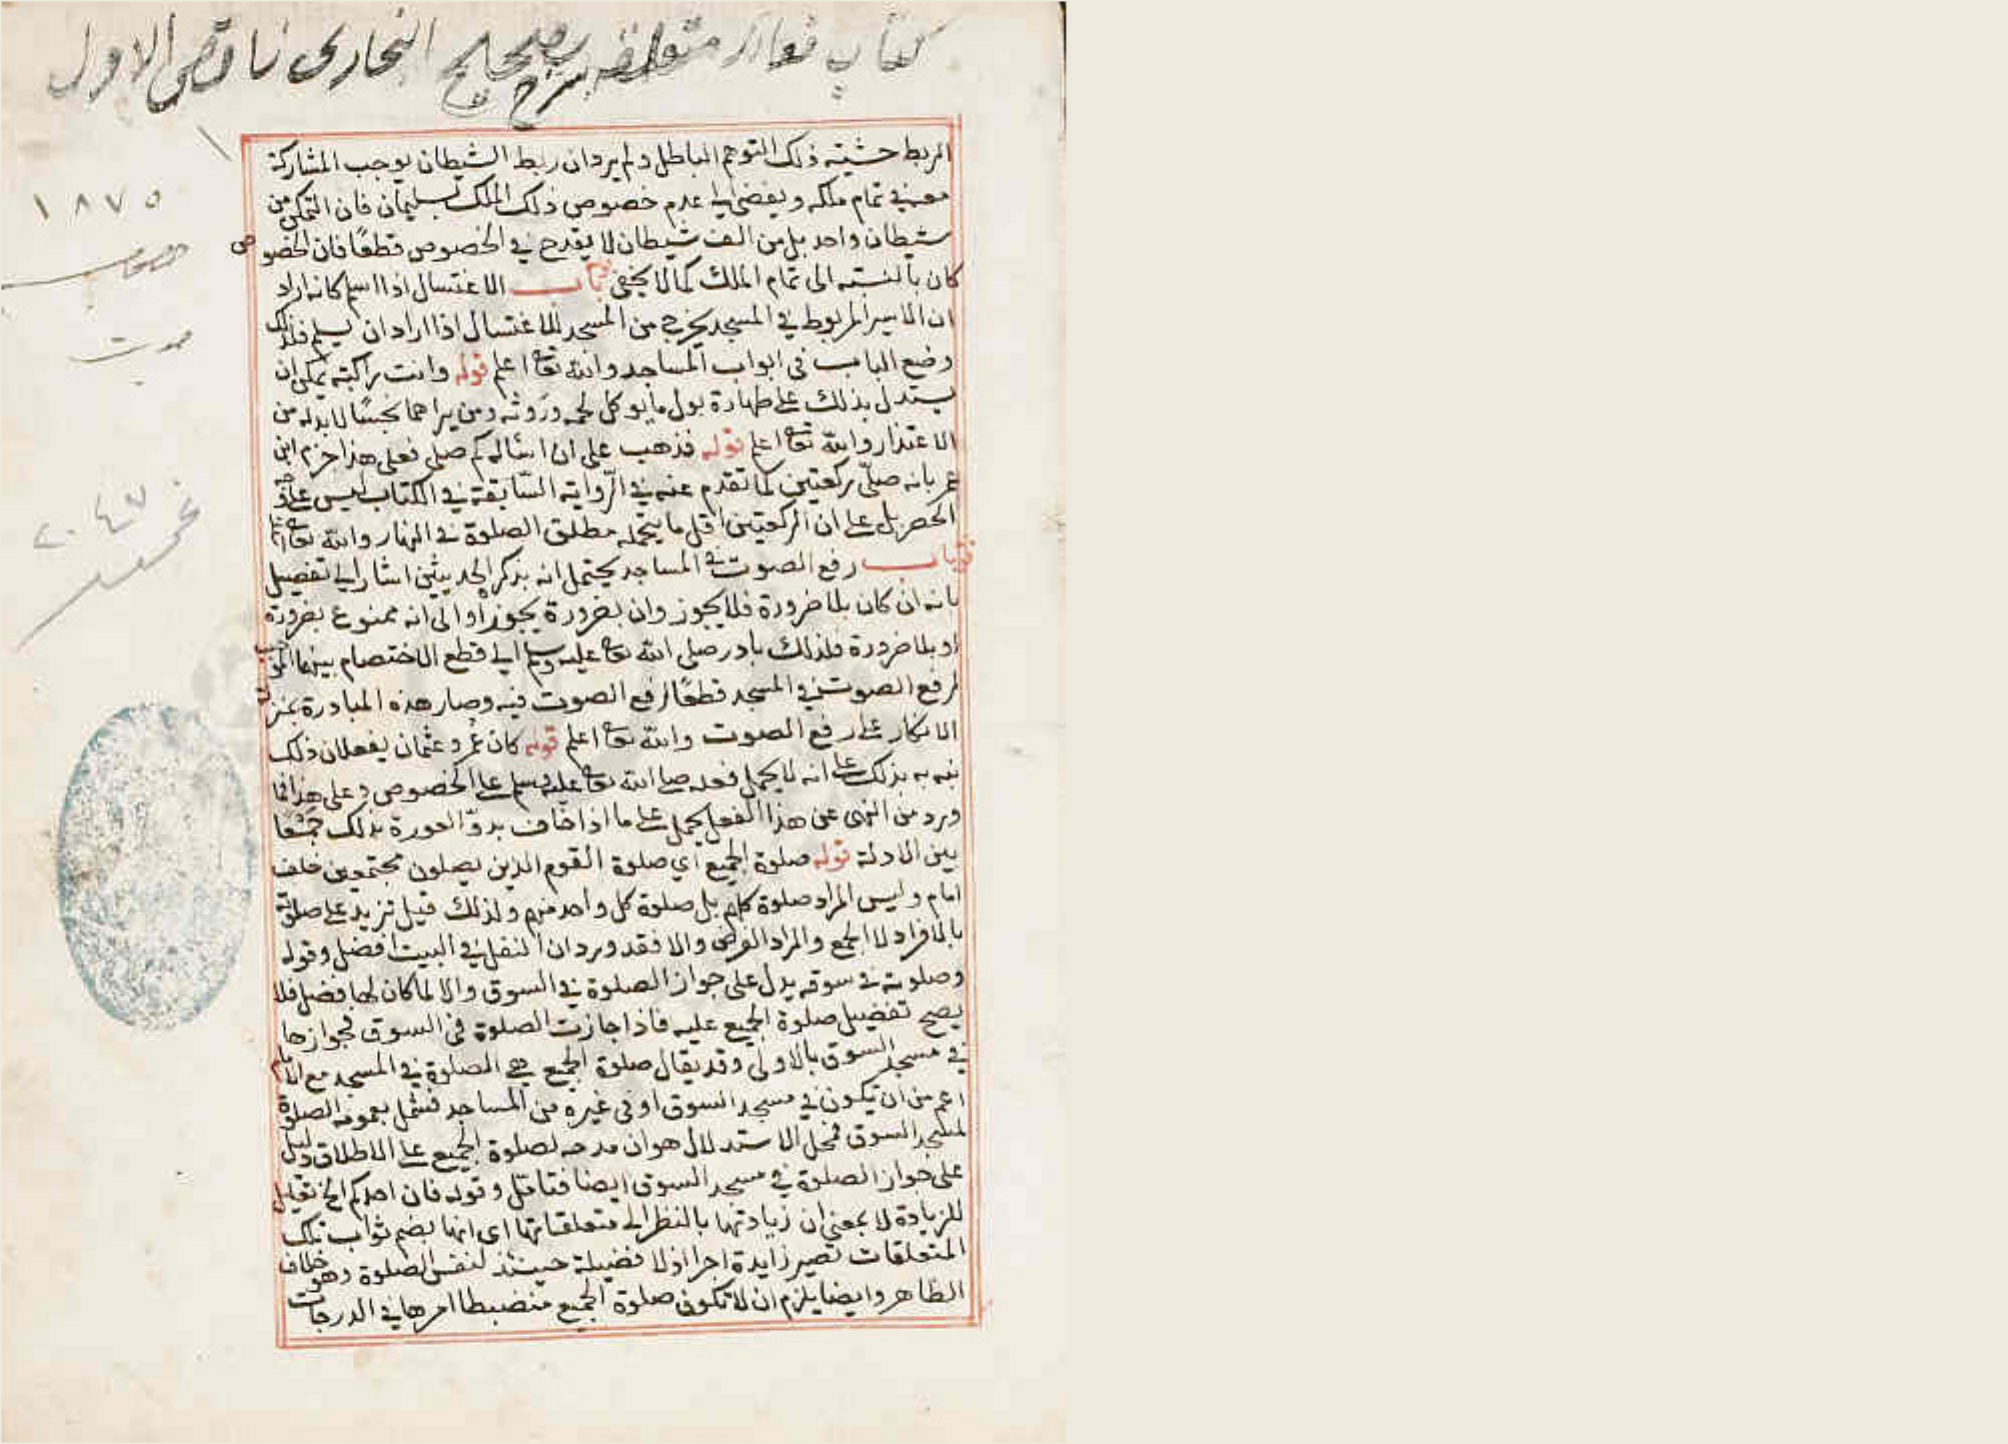 كتاب متعلقه بشرح صحيح البخارى ناقص الاول
١٨٧٥
الربط خشيته ذلك التوهم الباطل ولم يرد ان ربط الشيطان يوجب المشاركة
معه في تمام ملكه ويفضي الى عدم خصوص ذلك الملك بسليمان فان التمكن من
شيطان واحد بل من الف شيطان لا يقدح في الخصوص قطعًا فان الخصوص
كان بالنسبة الى تمام الملك كما لا يخفى باب الاغتسال اذا اسلم كانه اراد
ان الاسير المربوط في المسجد يخرج من المسجد للاغتسال اذا اراد ان يسلم فلذلك
وضع الباب في ابواب المساجد والله تعا اعلم قوله وانت راكبة يمكن ان
يستدل بذلك على طهارة بول ما يوكل لحمه وروثه ومن يراهما نجسًا لا بد له من
الاعتذار والله تعا اعلم قوله فذهب على ان اساله كم صلى فعلى هذا جزم ابن
عمر بانه صلّى ركعتين كما تقدم عنه في الرّواية السّابقة في الكتاب ليس على
الحصر بل على ان الركعتين اقل ما يتحمله مطلق الصلوة في النهار والله تعا اعلم
باب رفع الصوت في المساجد يحتمل انه بذكر الحديثين اشار الى تفصيل
بانه ان كان بلا ضرورة فلا يجوز وان بضرورة يجوز او الى انه ممنوع بضرورة
او بلا ضرورة فلذلك بادر صلى الله تعا عليه وسلم الى قطع الاختصام بينهما
لرفع الصوت في المسجد قطعًا لرفع الصوت فيه وصار هذه المبادرة بمنزلة
الانكار على رفع الصوت والله تعا اعلم قوله كان عمر وعثمان يفعلان ذلك
نبه به بذلك على انه لا يحمل فعله صلى الله تعا عليه وسلم على الخصوص وعلى هذا فما
ورد من النهى عن هذا الفعل يحمل على ما اذا خاف بدوّ العورة بذلك جمعًا
بين الادلة قوله صلوة الجميع اي صلوة القوم الذين يصلون مجتمعين خلف
امام وليس المراد صلوة كلهم بل صلوة كل واحد منهم ولذلك قيل تزيد على صلوته
بالافراد لا الجمع والمراد الفرض والا فقد ورد ان النفل في البيت افضل وقوله
وصلوته في سوقه يدل على جواز الصلوة في السوق والا لما كان لها فضل فلا
يصح تفضيل صلوة الجميع عليه فاذا جازت الصلوة في السوق فجوازها
في مسجد السوق بالاولى وقد يقال صلوة الجميع هي الصلوة في المسجد مع الامام
اعم من ان يكون في مسجد السوق او في غيره من المساجد فشمل بعمومه الصلوة
لمسجد السوق فمحل الاستدلال هو ان مدحه لصلوة الجميع على الاطلاق دليل
على جواز الصلوة في مسجد السوق ايضا فتامّل وقوله فان احدكم الخ تعليل
للزيادة لا بمعنى ان زيادتها بالنظر الى متعلقاتها اى انها بضم ثواب تلك
المتعلقات تصير زايدة اجرا اذ لا فضيلة حينئذ لنفس الصلوة وهو خلاف
الظاهر وايضا يلزم ان لا تكون صلوة الجميع منضبطا امرها في الدرجات